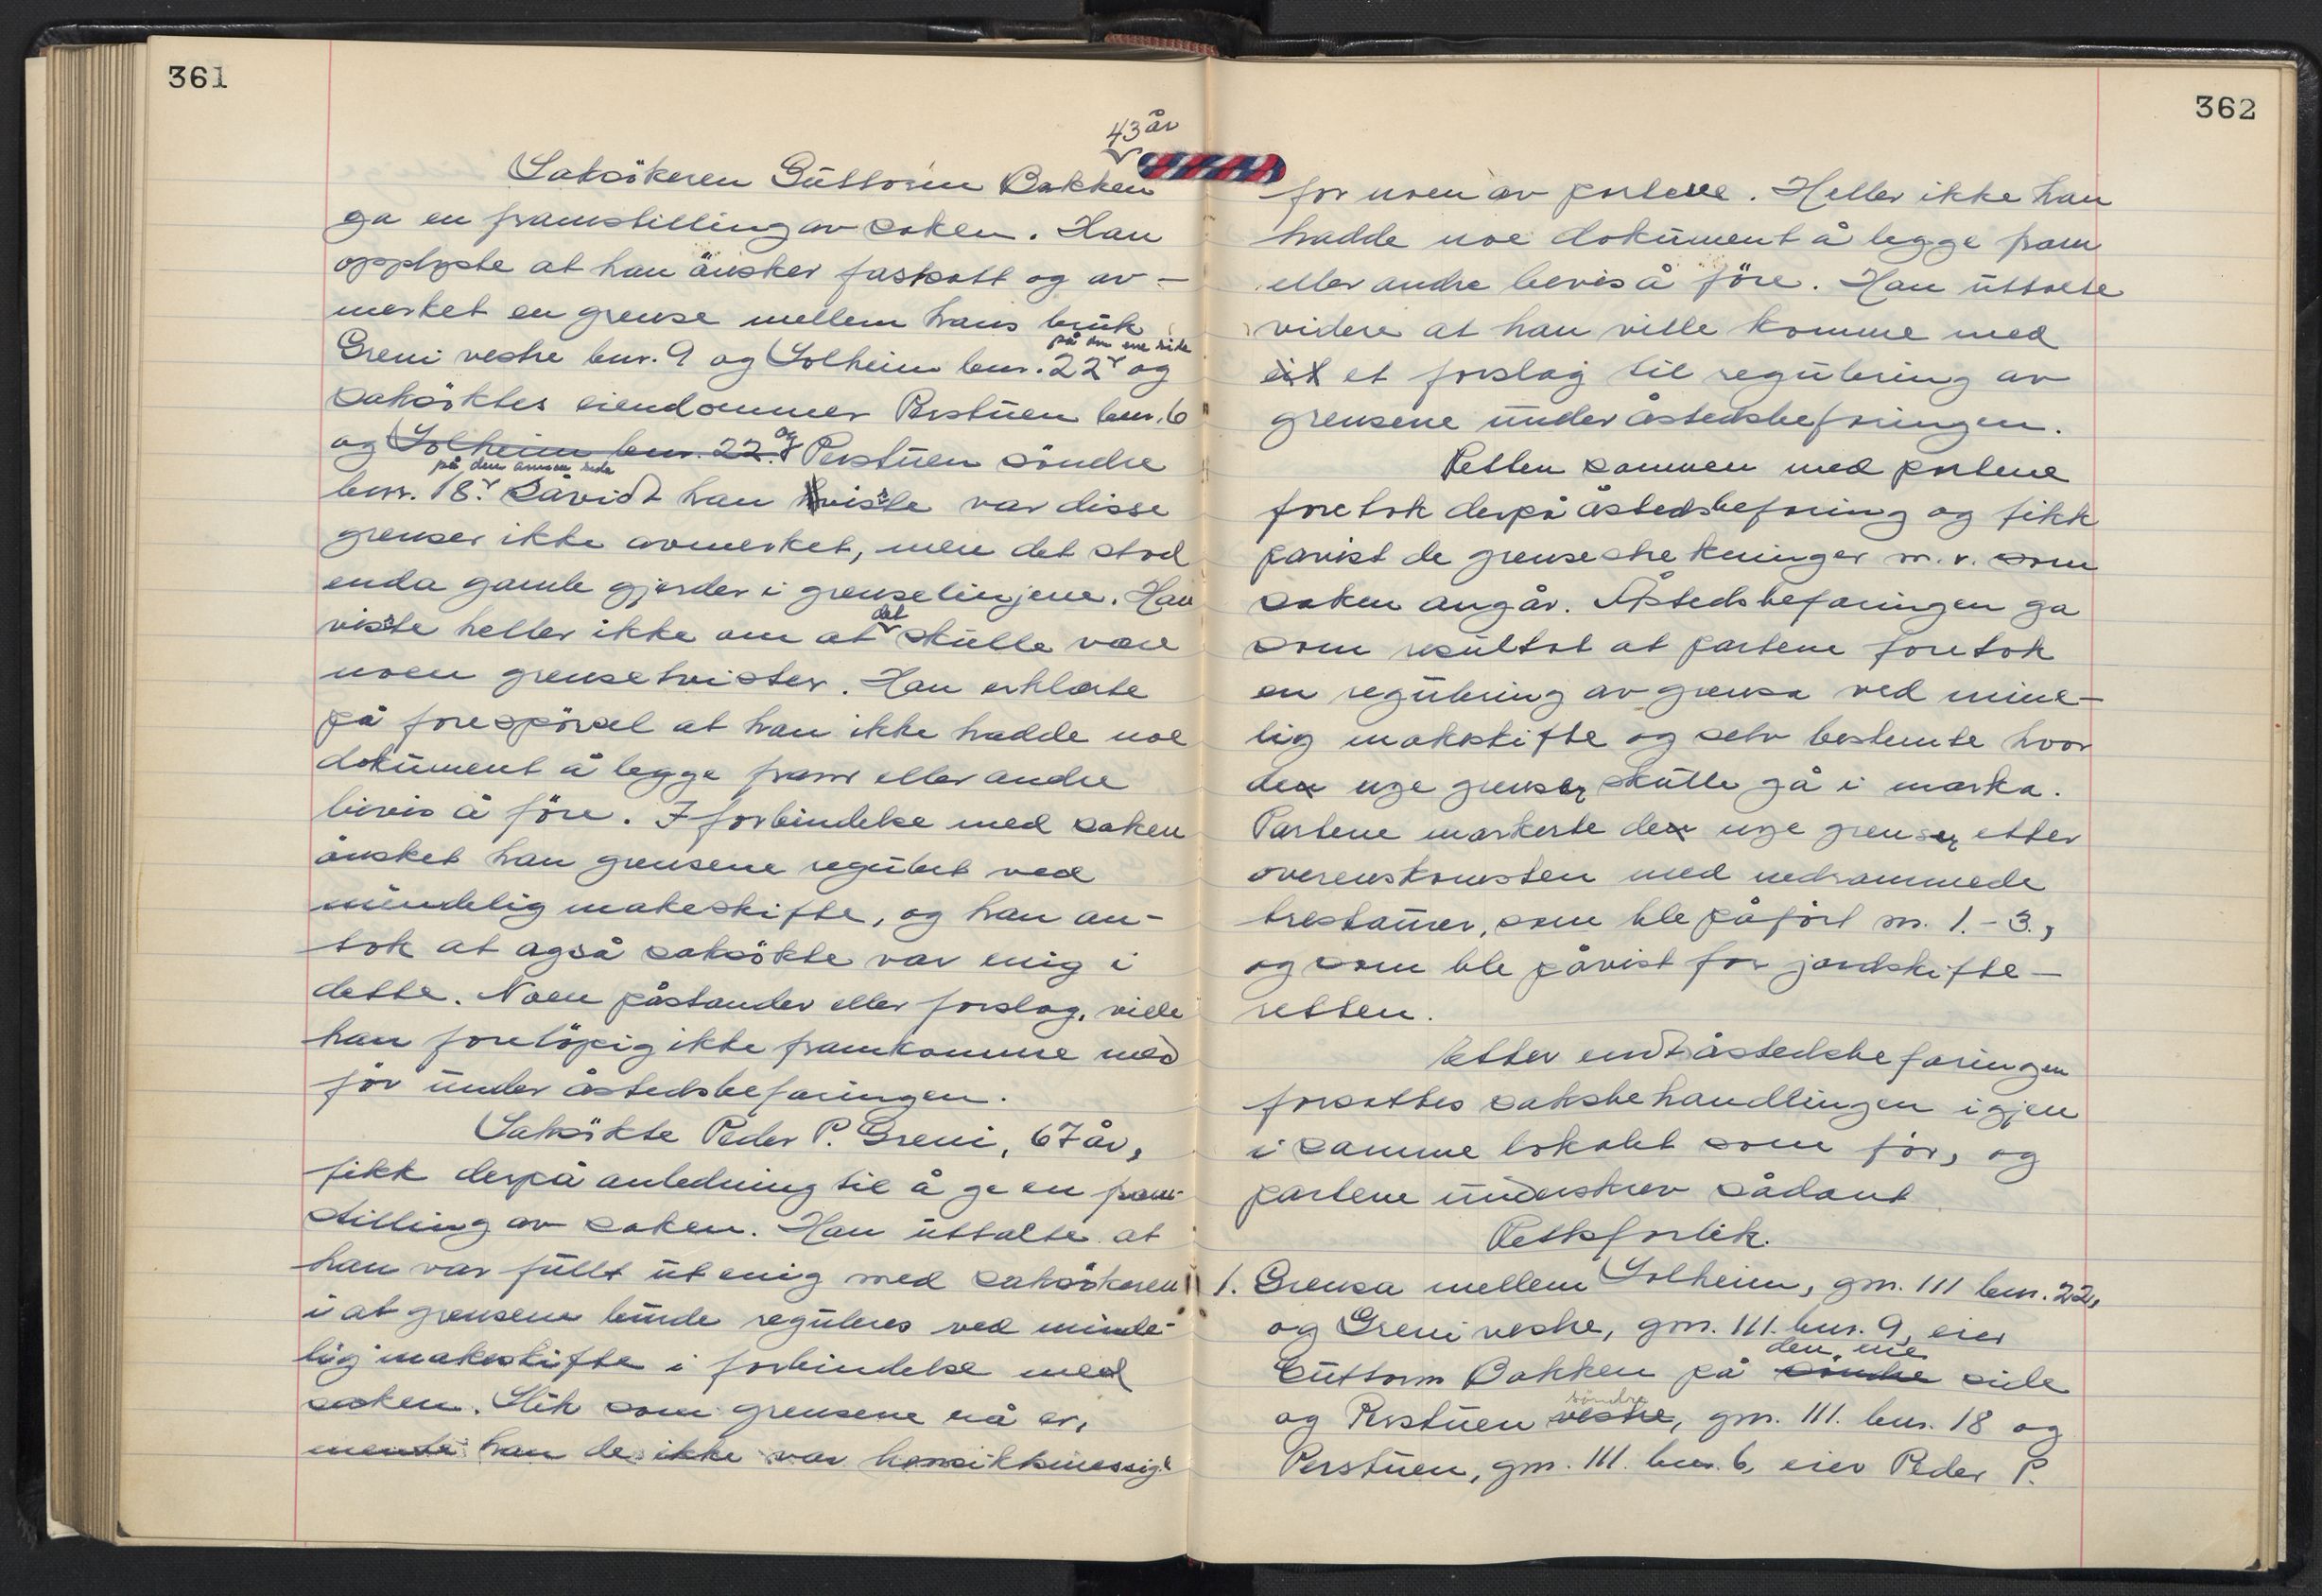 361
43 år
Saksökeren Guttorm Bakken
ga en framstilling av saken. Han
opplyste at han önsker fastsatt og av-
merket en grense mellem hans bruk
på den ene side
Greni vestre bnr. 9 og Solheim bnr. 22 og
saksöktes eiendommer Perstuen bnr. 6
og Solheim bnr. 22. og Perstuen söndre
på den annen side
bnr. 18. Såvidt han visste var disse
grenser ikke avmerket, men det stod
enda gamle gjerder i grenselinjene. Han
det
visste heller ikke om at skulle være
noen grensetvister. Han erklærte
på forespörsel at han ikke hadde noe
dokument å legge fram eller andre
bevis å före. I forbindelse med saken
önsket han grensene regulert ved
minnelig makeskifte, og han an-
tok at også saksökte var enig i
dette. Noen påstander eller forslag, ville
han forelöpig ikke framkomme med
för under åstedsbefaringen.
Saksökte Peder P. Greni, 67 år,
fikk derpå anledning til å ge en fram-
stilling av saken. Han uttalte at
han var fullt ut enig med saksökeren
i at grensene burde reguleres ved minde-
lig makeskifte i forbindelse med
saken. Slik som grensene nå er,
mente han de ikke var hensiktsmessige
362
for noen av partene. Heller ikke han
hadde noe dokument å legge fram
eller andre bevis å före. Han uttalte
videre at han ville komme med
et forslag til regulering av
grensene under åstedsbefaringen.
Retten sammen med partene
foretok derpå åstedsbefaring og fikk
påvist de grensestrekninger m. v. som
saken angår. Åstedsbefaringen ga
som resultat at partene foretok
en regulering av grensa ved mine-
lig makeskifte og selv bestemte hvor
de nye grenser skulle gå i marka.
Partene markerte de nye grenser etter
overenskomsten med nedrammede
trestaurer, som ble påfört nr. 1.-3.,
og som ble påvist for jordskifte-
retten.
Etter endt åstedsbefaringen
forsattes saksbehandlingen igjen
i samme lokalet som för, og
partene underskrev sådant
Rettsforlik.
1. Grensa mellem Solheim, gnr. 111 bnr. 22,
og Greni vestre, gnr. 111. bnr. 9, eier
den ene
Guttorm Bakken på söndre side
söndre
og Perstuen vestre, gnr. 111. bnr. 18 og
Perstuen, gnr. 111. bnr. 6, eier Peder P.